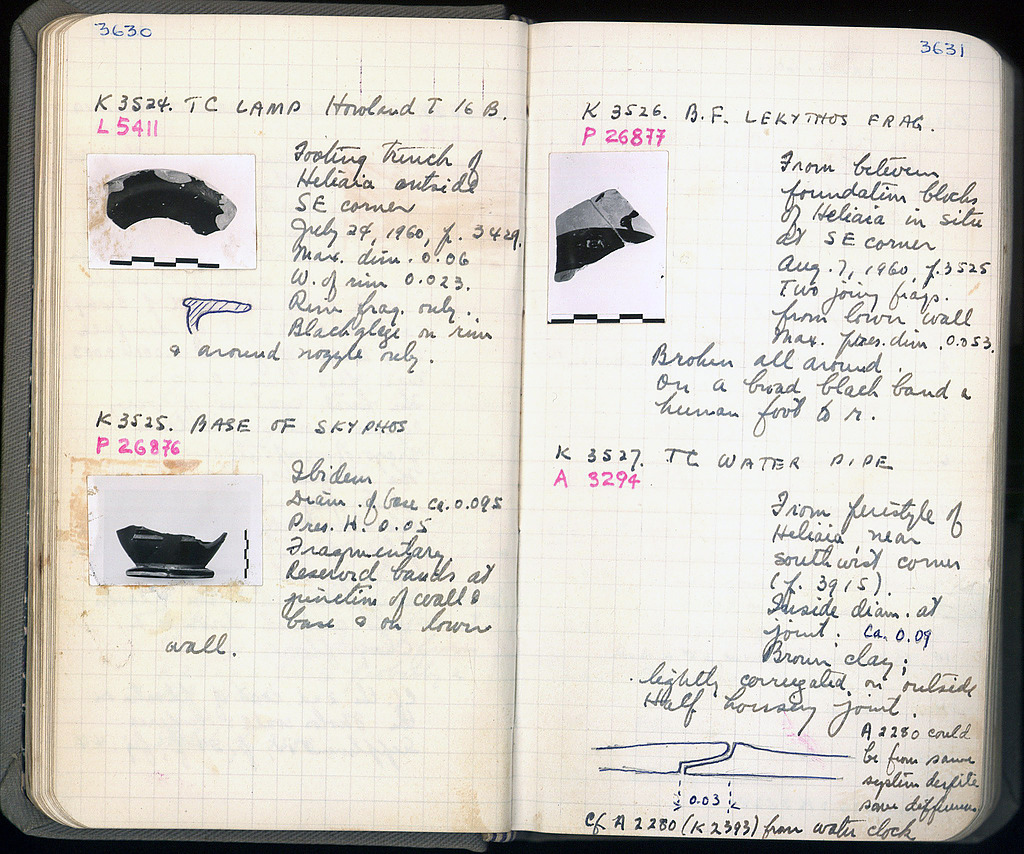 3630
K 3524. TC LAMP Howland T 16 B.
L 5411
Footing trench of
Heliaia outside
SE corner
July 29, 1960, p. 3429.
Max. dim. 0.06
W. of rim 0.023.
Rim frag. only.
Black glaze on rim
& around nozzle only.
K 3525. BASE OF SKYPHOS
P 26876
Ibidem
Diam. of base ca. 0.095
Pres. H. 0.05
Fragmentary.
Reserved bands at
junction of wall &
base & on lower
wall.
3631
K 3526. B.F. LEKYTHOS FRAG.
P 26877
From between
foundation blocks
of Heliaia in situ
at SE corner
Aug. 7, 1960, p. 3525
Two joing frags.
from lower wall
Max. pres. dim. 0.053.
Broken all around.
On a broad black band a
human foot to r.
K 3527. TC WATER PIPE
A 3294
From peristyle of
Heliaia near
southwest corner
(p. 3915).
Inside diam. at
joint. ca. 0.09
Brown clay;
lightly corrugated on outside
Half housing joint.
A 2280 could
be from same
system despite
some differences
0.03
Cf. A 2280 (K 2393) from water clock